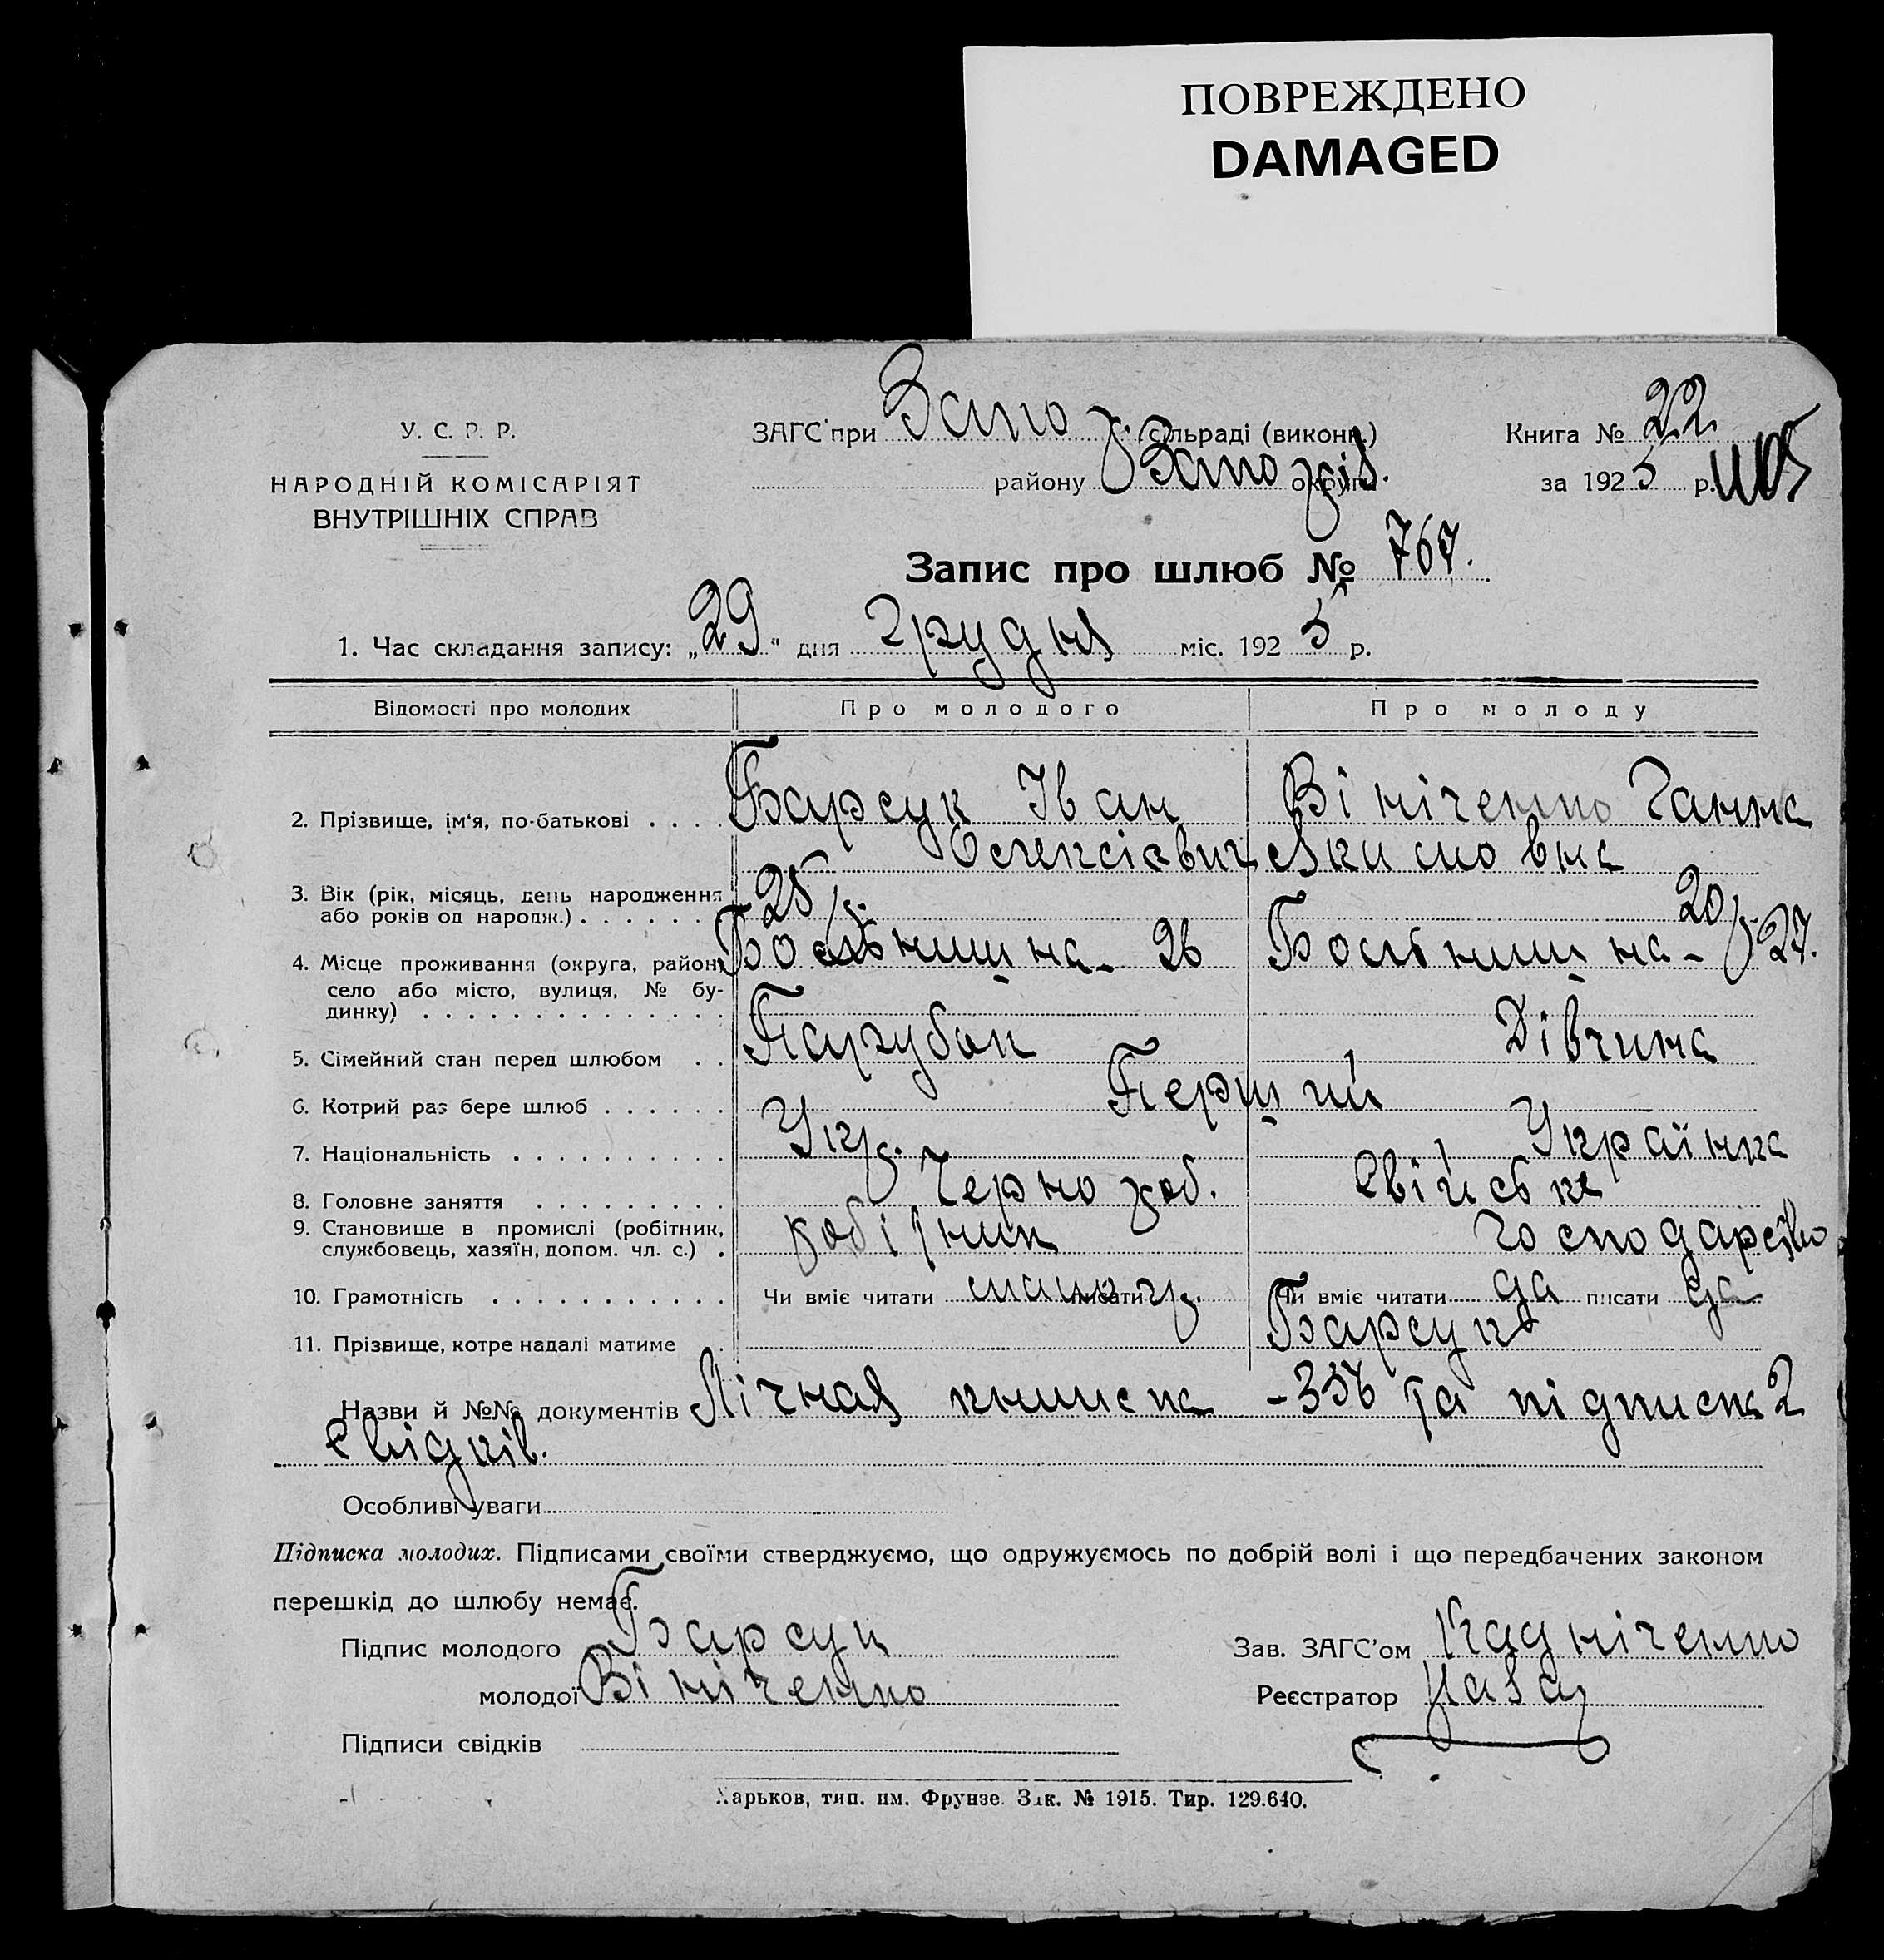 ПОВРЕЖДЕНО
DAMAGED
У. С. Р. Р.
НАРОДНІЙ КОМІСАРІЯТ
ВНУТРІШНІХ СПРАВ
ЗАГС'при Запо сільраді (виконк.)
району Запоріз. округи
Книга № 22
за 1925 р.
Запис про шлюб № 767.
1. Час складання запису: „29" дня Грудня міс. 1925 р.
Відомості про молодих Про молодого Про молоду
2. Прізвище, ім'я, по-батькові . . . . Барсук Іван Вініченко Ганна
Олексієвич Якимовна
3. Вік (рік, місяць, день народження
або років од народж.) . . . . . . 25 р. 20 р.
4. Місце проживання (округа, район, Больнична - 26 Больнична - 27.
село або місто, вулиця, № бу-
динку) . . . . . . . . . . . . . .
5. Сімейний стан перед шлюбом . . Парубок Дівчина
6. Котрий раз бере шлюб . . . . . . Перший
7. Національність . . . . . . . . . . Укр. Українка
8. Головне заняття . . . . . . . . . Чернороб. Свійське
9. Становище в промислі (робітник, робітник господарство
службовець, хазяїн, допом. чл. с.) .
10. Грамотність . . . . . . . . . . . Чи вміє читати малогр. писати Чи вміє читати да писати да
11. Прізвище, котре надалі матиме . Барсук
Назви й №№ документів Лічная книжка - 336 та підписка 2
свідків.
Особливі уваги
Підписка молодих. Підписами своїми стверджуємо, що одружуємось по добрій волі і що передбачених законом
перешкід до шлюбу немає.
Підпис молодого Барсук Зав. ЗАГС'ом Кадніченко
молодої Вініченко Реєстратор
Підписи свідків
Харьков, тип. им. Фрунзе. Зак. № 1915. Тир. 129.640.